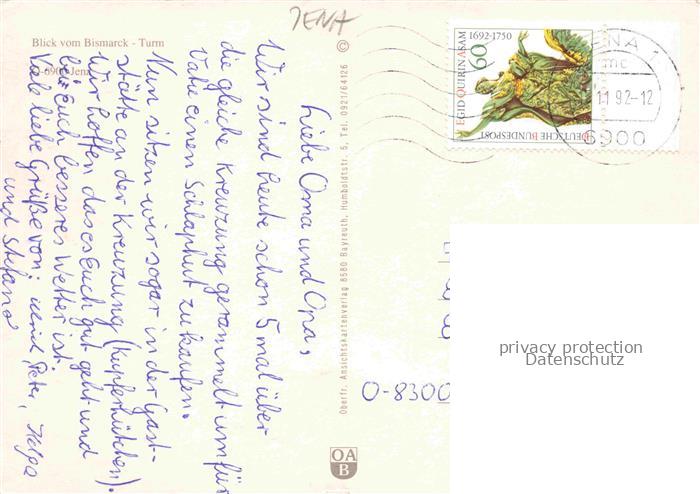 JENA
Blick vom Bismarck - Turm
O-6900 Jena
Liebe Oma und Opa,
Wir sind heute schon 5 mal über
die gleiche Kreuzung gerammelt um für
Vati einen Schlaphut zu kaufen.
Nun sitzen wir sogar in der Gast-
stätte an der Kreuzung (Kupferhütchen).
Wir hoffen das es Euch gut geht und
bei Euch besseres Wetter ist.
Viele liebe Grüße von: Peter, Helga
und Stefand
©
Oberfr. Ansichtskartenverlag 8580 Bayreuth, Humboldtstr. 5, Tel. 0921/64126
OA
B
EGID QUIRIN ASAM
1692-1750
60
DEUTSCHE BUNDESPOST
JENA
mc
11 92-12
6900
O-8300
privacy protection
Datenschutz